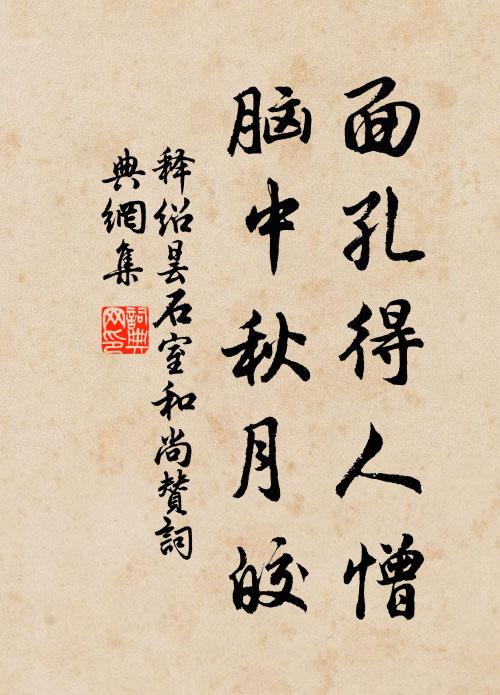 面孔得人憎
脑中秋月皎
释绍昙石室和尚赞词
典网集
词典网印